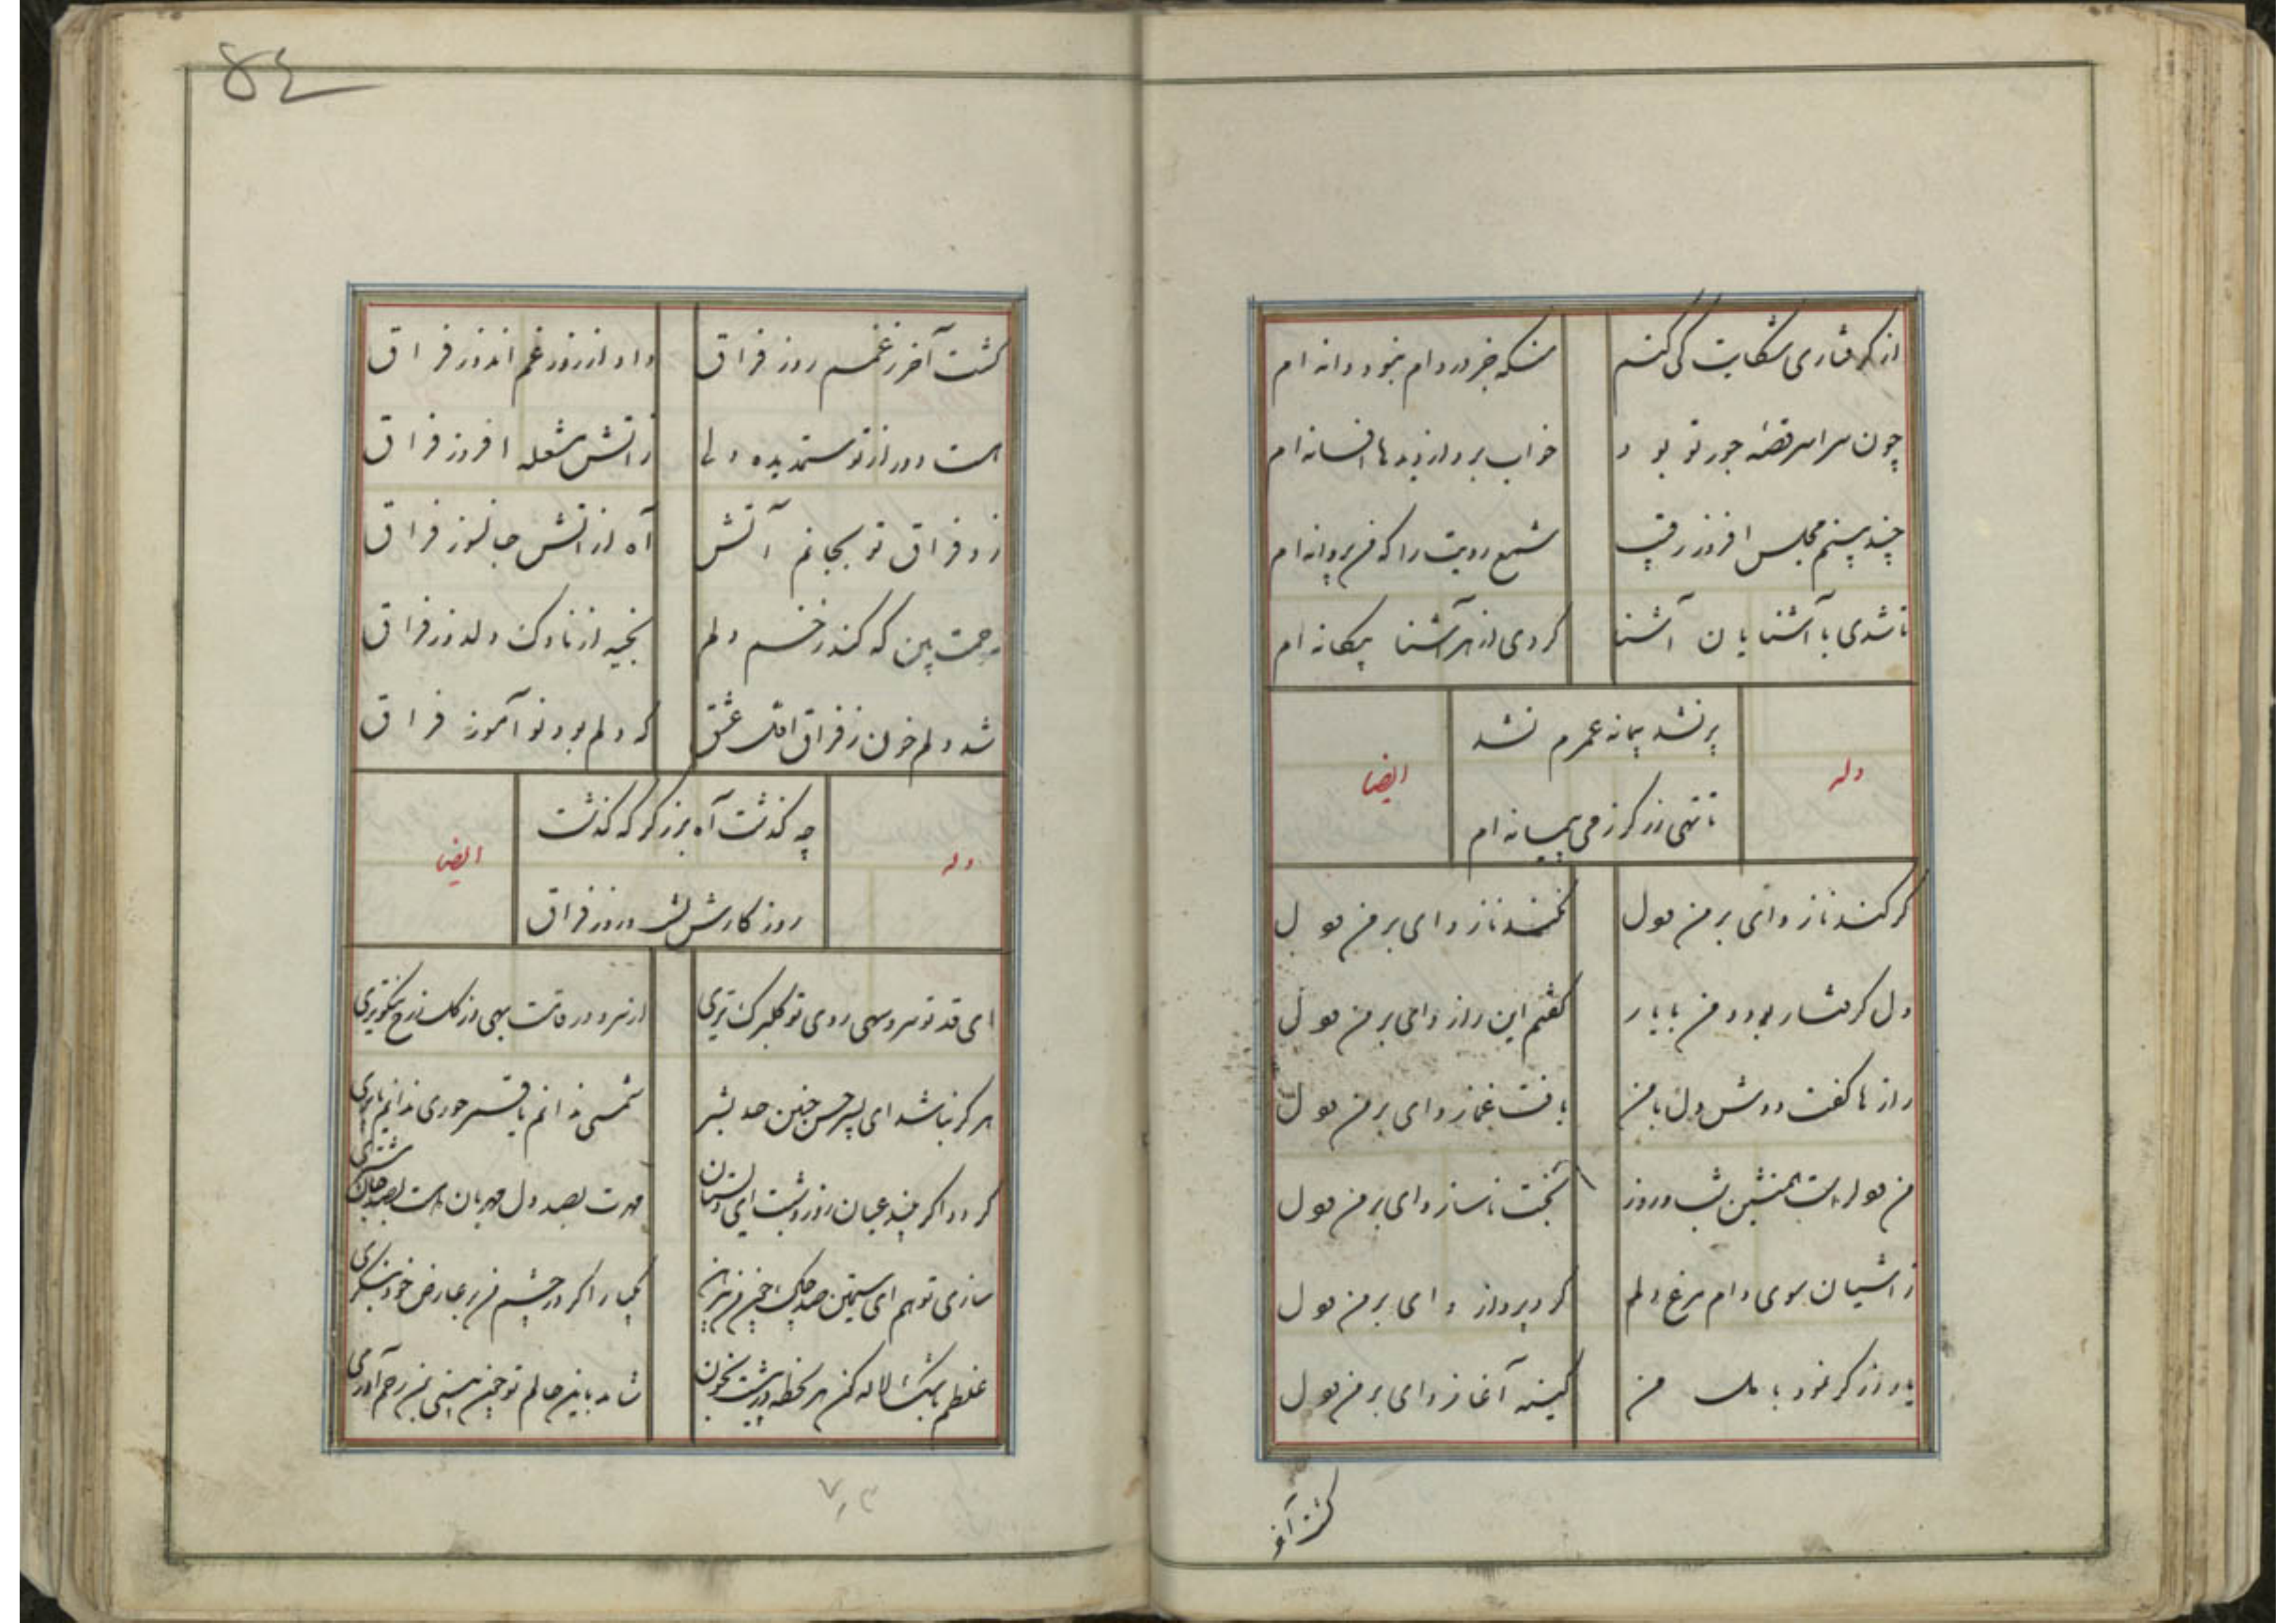 از گرفتاری شکایت کی کنم
منکه جز در دام نبود دانه ام
چون سراسر قصه جور تو بود
خواب برد از دیدها افسانه ام
چند بینم مجلس افروز رقیب
شمع رویت را که من پروانه ام
تا شدی با آشنایان آشنا
کردی از هر آشنا بیکانه ام
وله
پر نشد پیمانه عمرم نشد
تا تهی از می پیمانه ام
ایضا
کر کند ناز وای بر من و دل
نکند ناز وای بر من و دل
دل گرفتار بود و من با یار
گفتم این راز وای بر من و دل
رازها گفت دوش دل با من
یافت غماز وای بر من و دل
من و دل راست همنشین شب و روز
بخت ناساز وای بر من و دل
ز آشیان سوی دام مرغ دلم
کرد پرواز وای بر من و دل
یار نمود با من
کینه آغاز وای بر من و دل
گشت آخر
۵٤
گشت آخر ز غمم روز فراق
داد از روز غم اندوز فراق
است دور از تو ستمدیده دلی
ز آتش شعله افروز فراق
زد فراق تو بجانم آتش
آه از آتش جانسوز فراق
رحمت بین که کند زخم دلم
بخیه از ناوک دلدوز فراق
شد دلم خون ز فراق عشق
که دلم بود نو آموز فراق
وله
چه گذشت آه که گذشت
روز کارش بشب و روز فراق
ایضا
ای قد تو سرو سهی روی تو گلبرگ تری
از سرو در قامت بهی وز گل برخ نیکوتری
هرگز نباشد ای پسر حسن چنین حد بشر
شمسی ندانم یا قمر حوری ندانم یا پری
گردد اگر چند عیان روز و شبت ای دلستان
مهرت بصد دل مهربان ماهت بصد جان مشتری
سازی تو هم ای سیمتن صد چاک چون من پیرهن
یکبار اگر در چشم من بر عارض خود بنگری
غلطم باشک لاله گون هر لحظه در پیشت بخون
شاید باین حالم تو چون بینی بمن رحم آوری